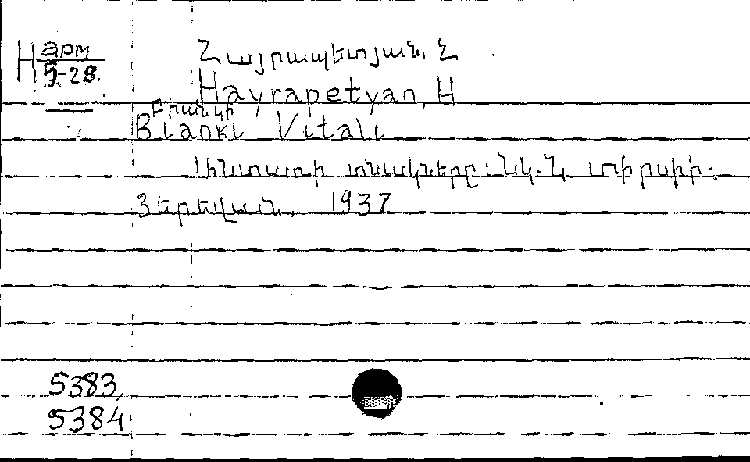 H арм
5-28.
Հայրապետյան, Հ
Hayrapetyan, H
Բիանկի
Bianki Vitali
Անտառի տնակները: Նկ. Ն.
Յերեվան, 1937
5383,
5384